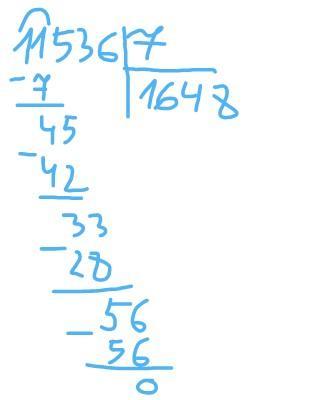 11536 7
- 7 1648
45
- 42
33
- 28
56
- 56
0